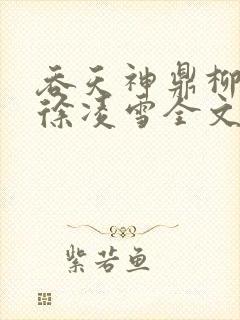 吞天神鼎柳
徐凌雪全文
紫若鱼